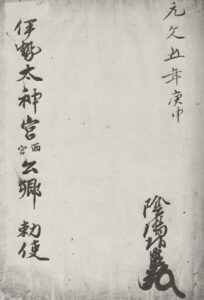 元文五年庚申
陰陽
伊勢太神宮両宮公卿勅使